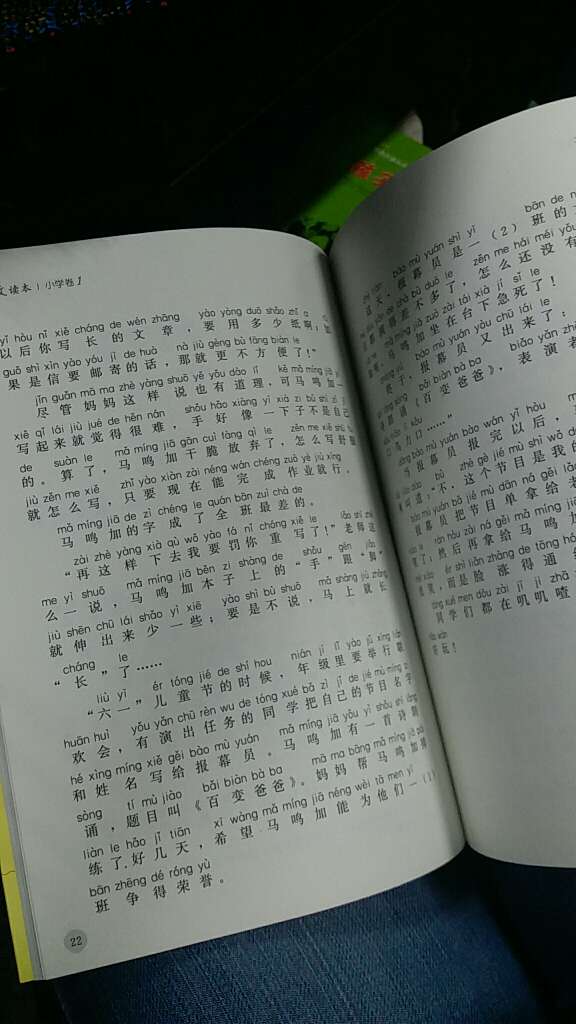 文读本 | 小学卷 1
yǐ hòu nǐ xiě cháng de wén zhāng yào yòng duō shǎo zhǐ a
以后你写长的文章，要用多少纸啊；如
guǒ shì xìn yào yóu jì de huà nà jiù gèng bù fāng biàn le
果是信要邮寄的话，那就更不方便了！”
jǐn guǎn mā ma zhè yàng shuō yě yǒu dào lǐ kě mǎ míng jiā
尽管妈妈这样说也有道理，可马鸣加一
xiě qǐ lái jiù jué de hěn nán shǒu hǎo xiàng yí xià zi bú shì zì jǐ
写起来就觉得很难，手好像一下子不是自己
de suàn le mǎ míng jiā gān cuì fàng qì le zěn me xiě shū fu
的。算了，马鸣加干脆放弃了，怎么写舒服
jiù zěn me xiě zhǐ yào xiàn zài néng wán chéng zuò yè jiù xíng
就怎么写，只要现在能完成作业就行。
mǎ míng jiā de zì chéng le quán bān zuì chà de
马鸣加的字成了全班最差的。
zài zhè yàng xià qù wǒ yào fá nǐ chóng xiě le lǎo shī zhè
“再这样下去我要罚你重写了！”老师这
me yì shuō mǎ míng jiā běn zi shàng de shǒu gēn jiǎo
么一说，马鸣加本子上的“手”跟“脚”
jiù shēn chū lái shǎo yì xiē yào shì bù shuō mǎ shàng jiù zhǎng
就伸出来少一些；要是不说，马上就长
cháng le
“长”了……
liù yī ér tóng jié de shí hou nián jí lǐ yào jǔ xíng lián
“六一”儿童节的时候，年级里要举行联
huān huì yǒu yǎn chū rèn wu de tóng xué bǎ zì jǐ de jié mù míng zì
欢会，有演出任务的同学把自己的节目名字
hé xìng míng xiě gěi bào mù yuán mǎ míng jiā yǒu yì shǒu shī lǎng
和姓名写给报幕员。马鸣加有一首诗朗
sòng tí mù jiào bǎi biàn bà ba mā ma bāng mǎ míng jiā pái
诵，题目叫《百变爸爸》。妈妈帮马鸣加排
liàn le hǎo jǐ tiān xī wàng mǎ míng jiā néng wèi tā men yī
练了好几天，希望马鸣加能为他们一（1）
bān zhēng dé róng yù
班争得荣誉。
22
bào mù yuán shì yī bān de
报幕员是一（2）班的
chà bù duō le zěn me hái méi yǒu
差不多了，怎么还没有
mǎ míng jiā zuò zài tái xià jí sǐ le
马鸣加坐在台下急死了！
bào mù yuán yòu chū lái le
报幕员又出来了：
bǎi biàn bà ba biǎo yǎn zhě
《百变爸爸》，表演者
口……”
bào mù yuán bào wán yǐ hòu
报幕员报完以后，
bù zhè ge jié mù shì wǒ de
叫道：“不，这个节目是我的
报幕员把节目单拿给老
rán hòu zài ná gěi mǎ míng jiā
然后再拿给马鸣加
ér shì liǎn zhàng de tōng hóng
而是脸涨得通
tóng xué men dōu zài jī jī zhā
同学们都在叽叽喳